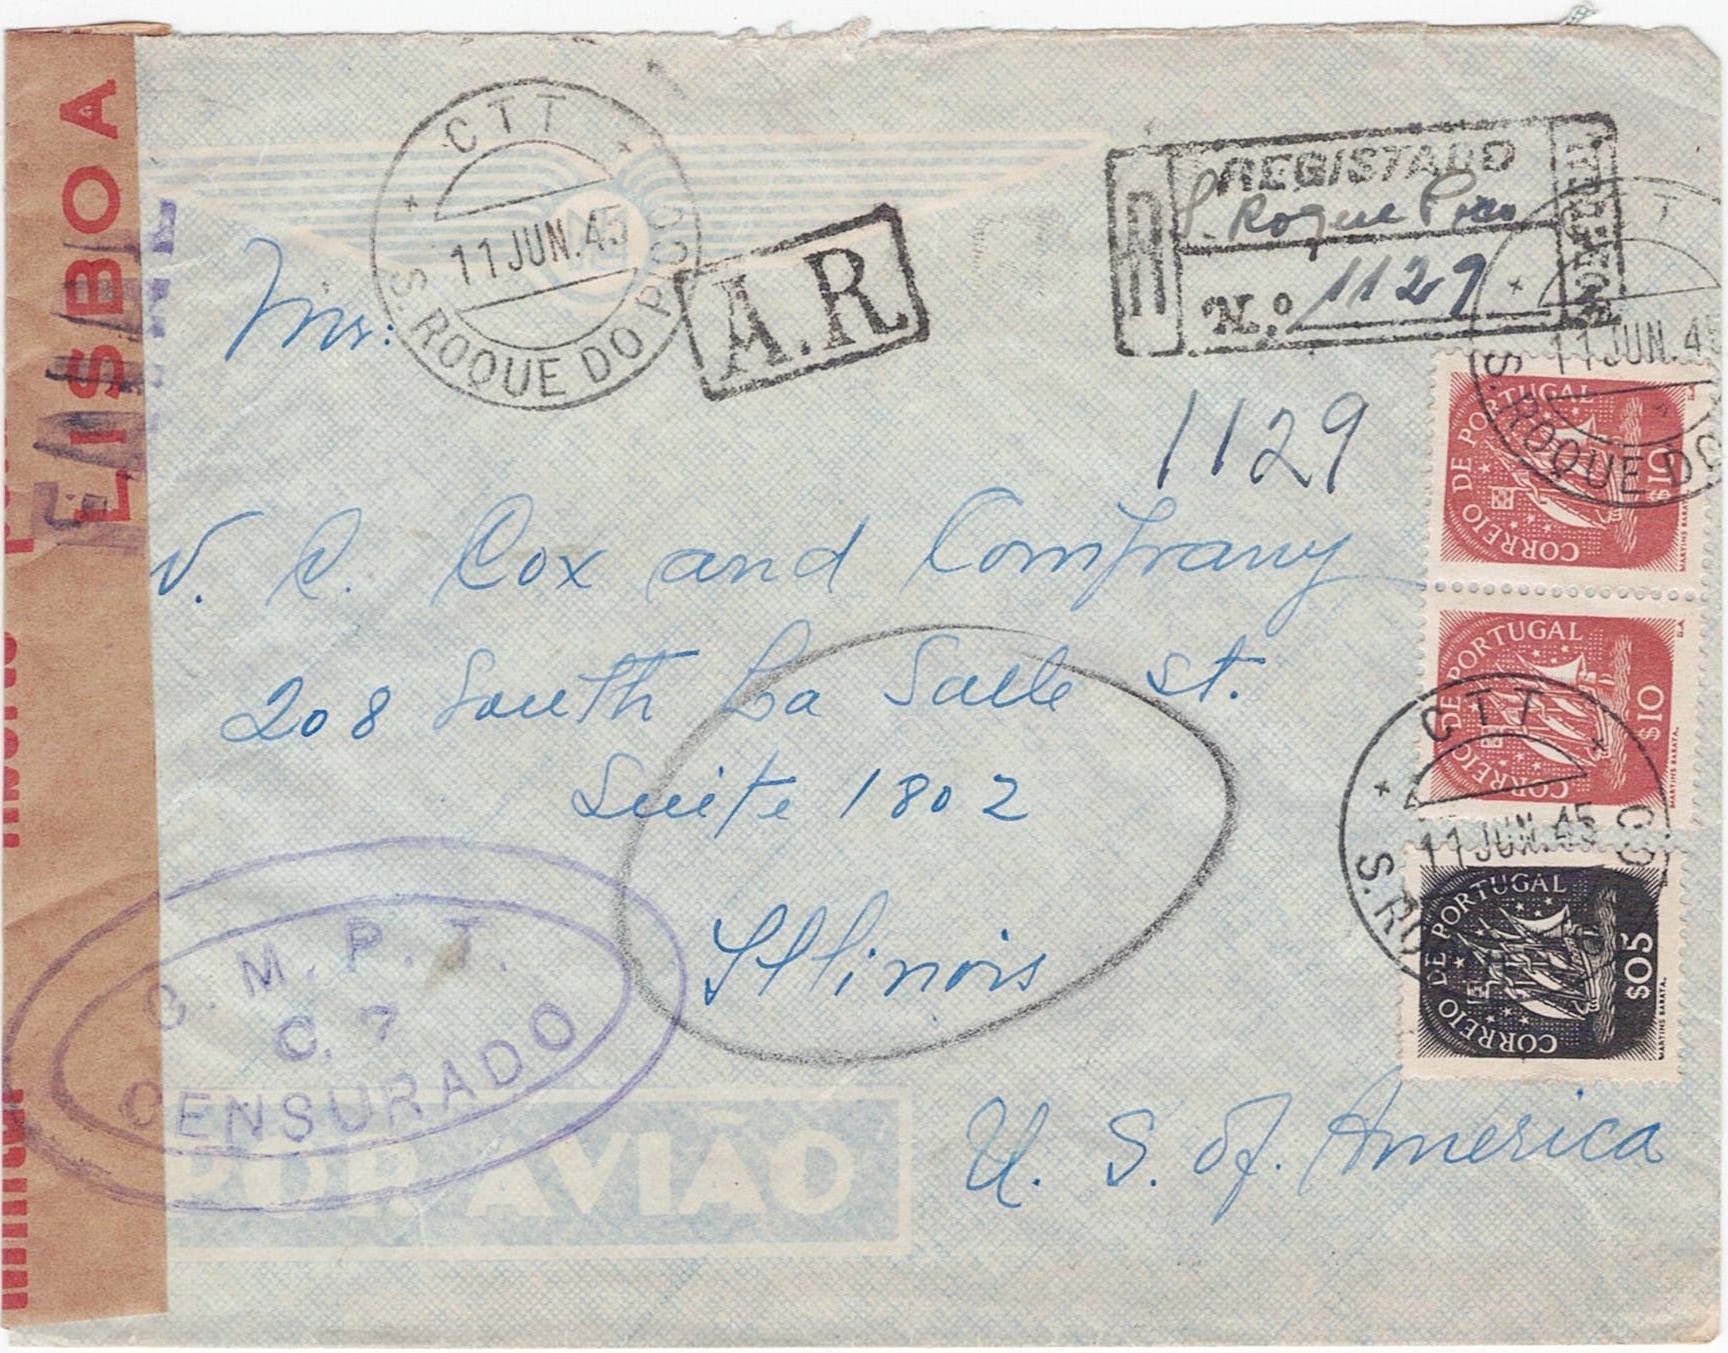 LISBOA
CTT
11 JUN. 45
S. ROQUE DO PICO
A.R
R
REGISTADO
S. Roque Pico
N.º 1129
CTT
11 JUN. 45
S. ROQUE DO
Mrs:
1129
V. C. Cox and Company
208 South La Salle St.
Suite 1802
Illinois
U. S. of. America
CORREIO DE PORTUGAL
$10
MARTINS BARATA.
CORREIO DE PORTUGAL
$10
MARTINS BARATA.
CTT
11 JUN. 45
S. RO
CO
CORREIO DE PORTUGAL
$05
MARTINS BARATA.
C. M. P. T.
C. 7
CENSURADO
POR AVIÃO